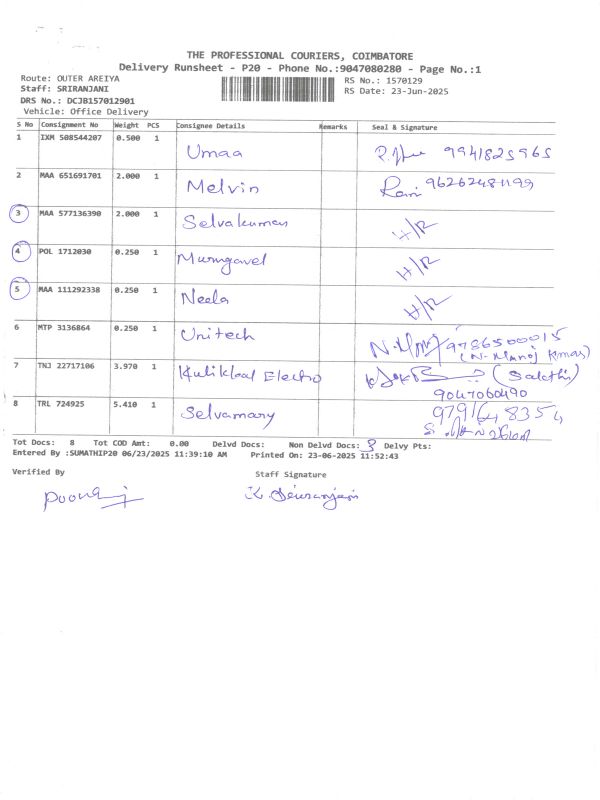 THE PROFESSIONAL COURIERS, COIMBATORE
Delivery Runsheet - P20 - Phone No.:9047080280 - Page No.:1
Route: OUTER AREIYA RS No.: 1570129
Staff: SRIRANJANI RS Date: 23-Jun-2025
DRS No.: DCJB157012901
Vehicle: Office Delivery
S No Consignment No Weight PCS Consignee Details Remarks Seal & Signature
1 IXM 508544207 0.500 1 Umaa 9941825965
2 MAA 651691701 2.000 1 Melvin Rani
3 MAA 577136390 2.000 1 Selvakumar H/R
4 POL 1712030 0.250 1 Murugavel H/R
5 MAA 111292338 0.250 1 Neela H/R
6 MTP 3136864 0.250 1 Unitech 9786500015
(N. Manoj Kumar)
7 TNJ 22717106 3.970 1 Electro (Sakthi)
9047060490
8 TRL 724925 5.410 1 Selvamary
Tot Docs: 8 Tot COD Amt: 0.00 Delvd Docs: Non Delvd Docs: 3 Delvy Pts:
Entered By :SUMATHIP20 06/23/2025 11:39:10 AM Printed On: 23-06-2025 11:52:43
Verified By Staff Signature